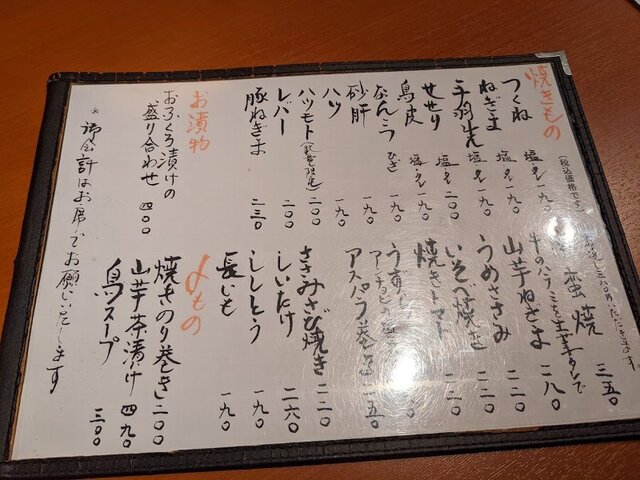 焼きもの
(税込価格です)
つくね 塩・タレ 一九〇
ねぎま 塩・タレ 一九〇
手羽先 塩・タレ 二〇〇
せせり 塩・タレ 一九〇
鳥皮 塩・タレ 一九〇
なんこつ ひざ 一九〇
砂肝 一九〇
ハツ 一九〇
ハツモト 二〇〇
レバー 二〇〇
豚ねぎま 二三〇
お漬物
おふくろ漬けの
盛り合わせ 四〇〇
蛮焼 三五〇
牛のハラミを
山芋ねぎま 二八〇
うめささみ 二二〇
いそべ焼き 二二〇
焼きトマト 二二〇
アスパラ巻き
ささみさび焼き 二二〇
しいたけ 二六〇
ししとう 一九〇
長いも 一九〇
〆もの
焼きのり巻き 二〇〇
山芋茶漬け 四九〇
鳥スープ 三〇〇
※御会計はお席でお願いいたします